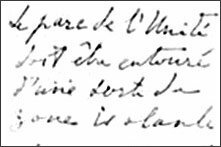 Le parc de l'Unité
doit être entouré
d'une sorte de
zone isolante